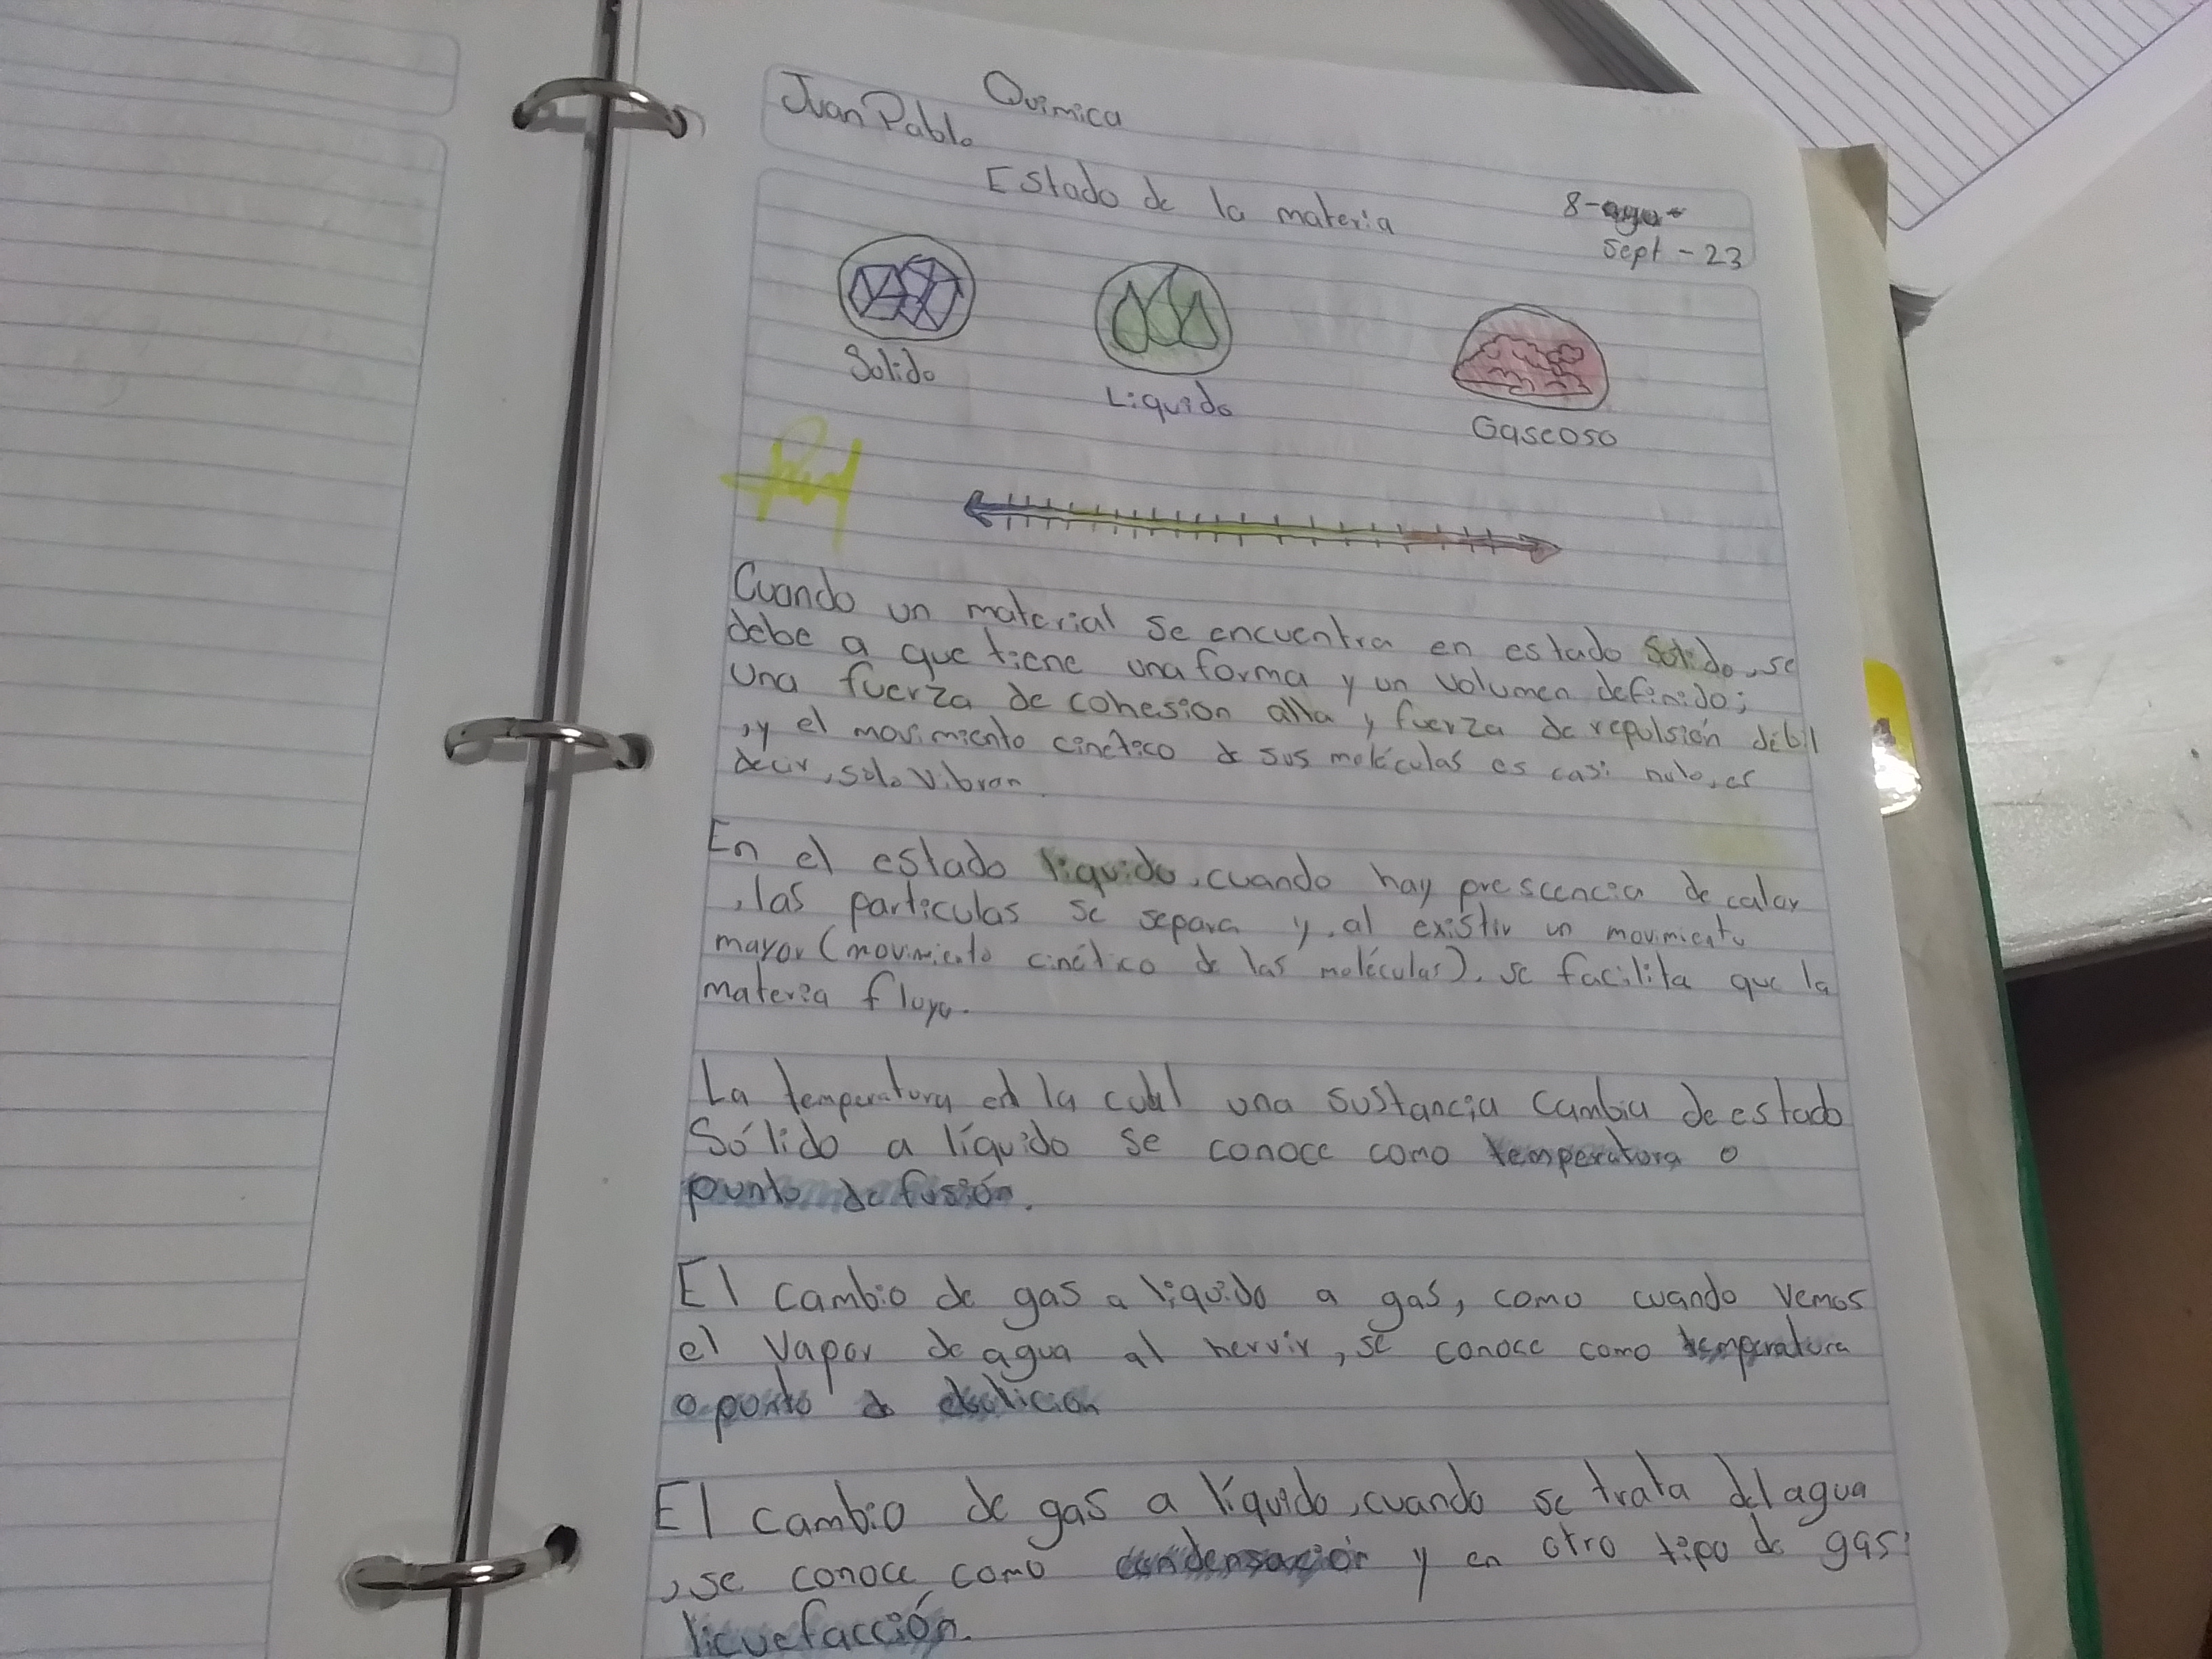 Química
Juan Pablo
Estado de la materia
8-ago-
Sept-23
Solido
Liquido
Gaseoso
Cuando un material se encuentra en estado Solido, se
debe a que tiene una forma y un volumen definido;
una fuerza de cohesion alta y fuerza de repulsión débil
, y el movimiento cinético de sus moléculas es casi nulo, es
decir, solo vibran.
En el estado liquido, cuando hay prescencia de calor
, las particulas se separa y, al existir un movimiento
mayor (movimiento cinético de las moléculas), se facilita que la
materia fluya.
La temperatura en la cual una sustancia cambia de estado
Sólido a líquido se conoce como temperatura o
punto de fusión.
El cambio de gas a liquido a gas, como cuando vemos
el vapor de agua al hervir, se conoce como temperatura
o punto de ebulicion
El cambio de gas a líquido, cuando se trata del agua
, se conoce como condensación y en otro tipo de gas:
licuefacción.